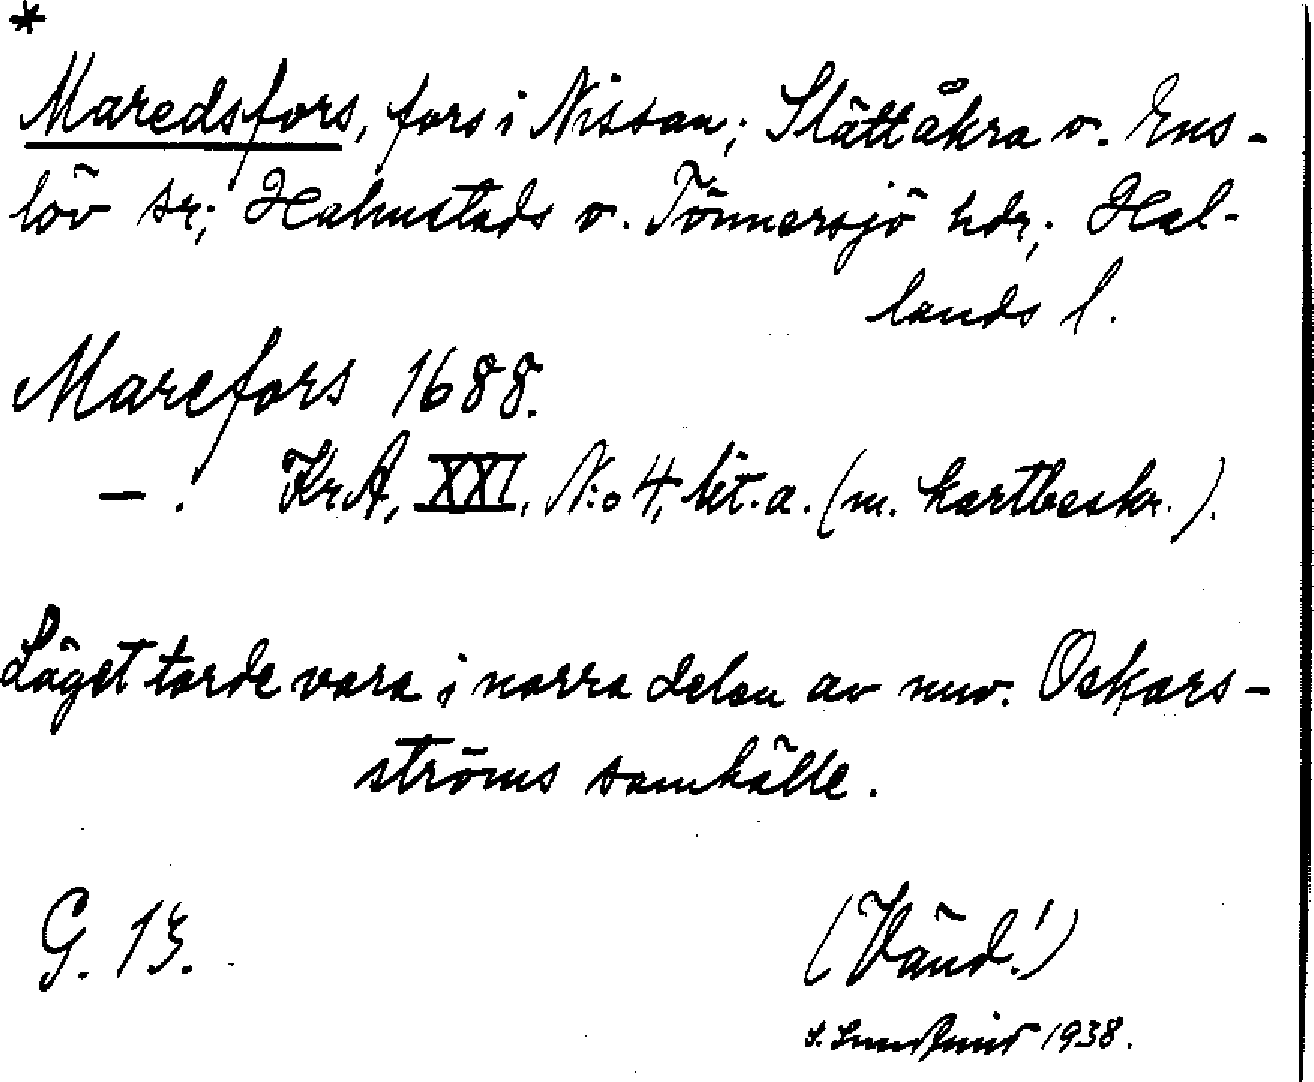 *
Maredsfors, fors i Nissan; Slättåkra o. Ens-
löv sr; Halmstads o. Tönnersjö hdr; Hal-
lands l.
Marefors 1688.
— . KrA, XXI, N:o 4, lit. a. (m. kartbeskr.).
Läget torde vara i norra delen av nuv. Oskars-
ströms samhälle.
G. 13.
(Vänd!)
1938.